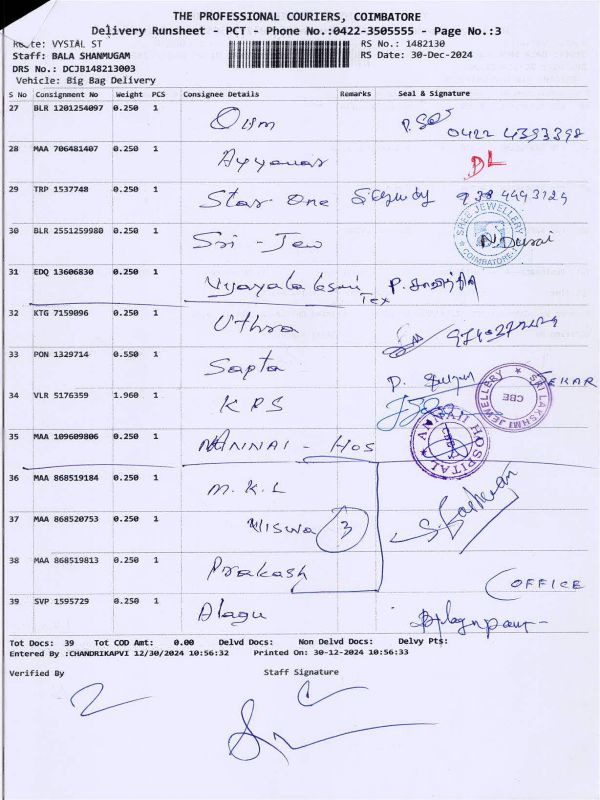 THE PROFESSIONAL COURIERS, COIMBATORE
Delivery Runsheet - PCT - Phone No.:0422-3505555 - Page No.:3
Route: VYSIAL ST RS No.: 1482130
Staff: BALA SHANMUGAM RS Date: 30-Dec-2024
DRS No.: DCJB148213003
Vehicle: Big Bag Delivery
S No Consignment No Weight PCS Consignee Details Remarks Seal & Signature
27 BLR 1201254097 0.250 1 0422 4393398
28 MAA 706481407 0.250 1 Ayyanar DL
29 TRP 1537748 0.250 1 Star One
30 BLR 2551259980 0.250 1 Sri - Jew N. Durai
SREE JEWELLERY COIMBATORE-1
31 EDQ 13606830 0.250 1 Tex
32 KTG 7159096 0.250 1 Uthra
33 PON 1329714 0.550 1 Sapta
34 VLR 5176359 1.960 1 KRS
SRI LAKSHMI JEWELLERY CBE
35 MAA 109609806 0.250 1 - HOS
HOSPITAL
36 MAA 868519184 0.250 1 M.K.L
37 MAA 868520753 0.250 1 Viswa 3
38 MAA 868519813 0.250 1 Prakash OFFICE
39 SVP 1595729 0.250 1 Alagu
Tot Docs: 39 Tot COD Amt: 0.00 Delvd Docs: Non Delvd Docs: Delvy Pts:
Entered By :CHANDRIKAPVI 12/30/2024 10:56:32 Printed On: 30-12-2024 10:56:33
Verified By Staff Signature